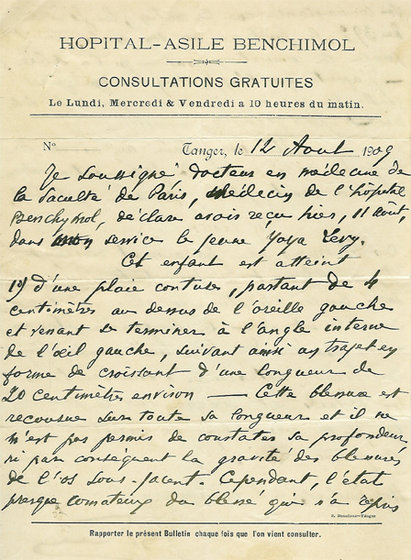 HOPITAL-ASILE BENCHIMOL
CONSULTATIONS GRATUITES
Le Lundi, Mercredi & Vendredi a 10 heures du matin.
N° Tanger, le 12 Aout 1909
Je soussigné docteur en médecine de
la faculté de Paris, médecin de l'hôpital
Benchymol, déclare avoir reçu hier, 11 août,
dans mon service le jeune Yaya Levy.
Cet enfant est atteint
1°) d'une plaie contuse, partant de 4
centimètres au dessus de l'oreille gauche
et venant se terminer à l'angle interne
de l'œil gauche, suivant ainsi un trajet en
forme de croissant d'une longueur de
20 centimètres environ — Cette blessure est
recousue sur toute sa longueur et il ne
m'est pas permis de constater sa profondeur
ni par conséquent la gravité des blessures
de l'os sous-jacent. Cependant, l'état
presque comateux du blessé qui n'a repris
Rapporter le présent Bulletin chaque fois que l'on vient consulter.